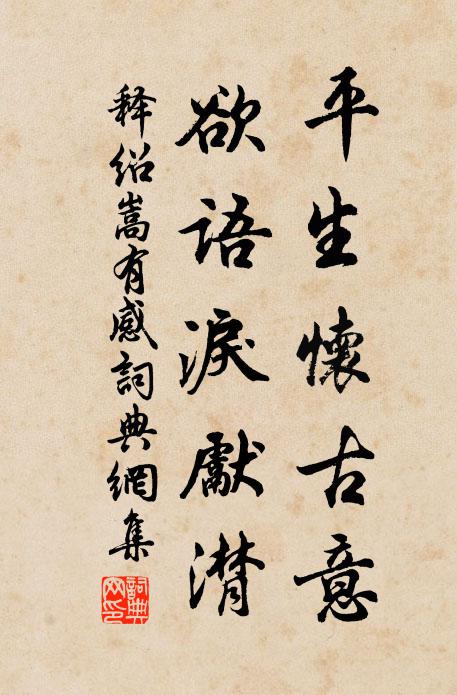 平生懷古意
欲語淚獻潸
释绍嵩有感詞典網集
詞典網印